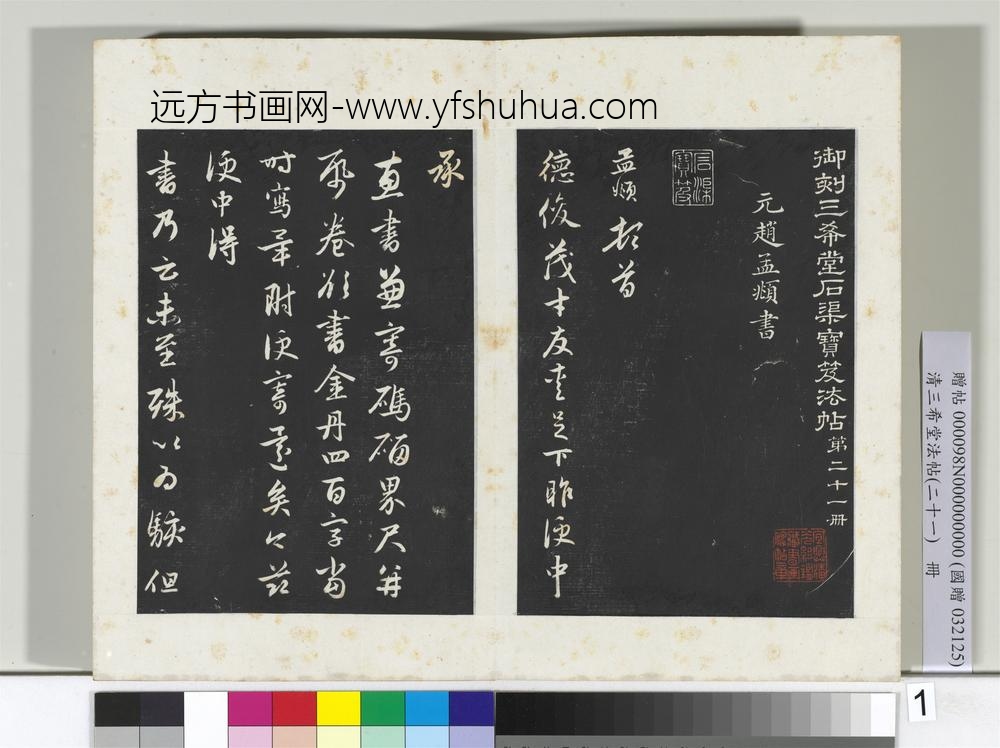 远方书画网-www.yfshuhua.com
御刻三希堂石渠寶笈法帖第二十一册
元趙孟頫書
石渠寶笈
孟頫頓首
德俊茂才友愛足下昨便中
承
惠書並寄碼碯界尺并
飛卷欲書金丹四百字當
時寫畢附便寄還矣今茲
便中得
書乃云未至殊以為駭但
贈帖 000098N000000000 (國贈 032125)
清三希堂法帖(二十一) 冊
1